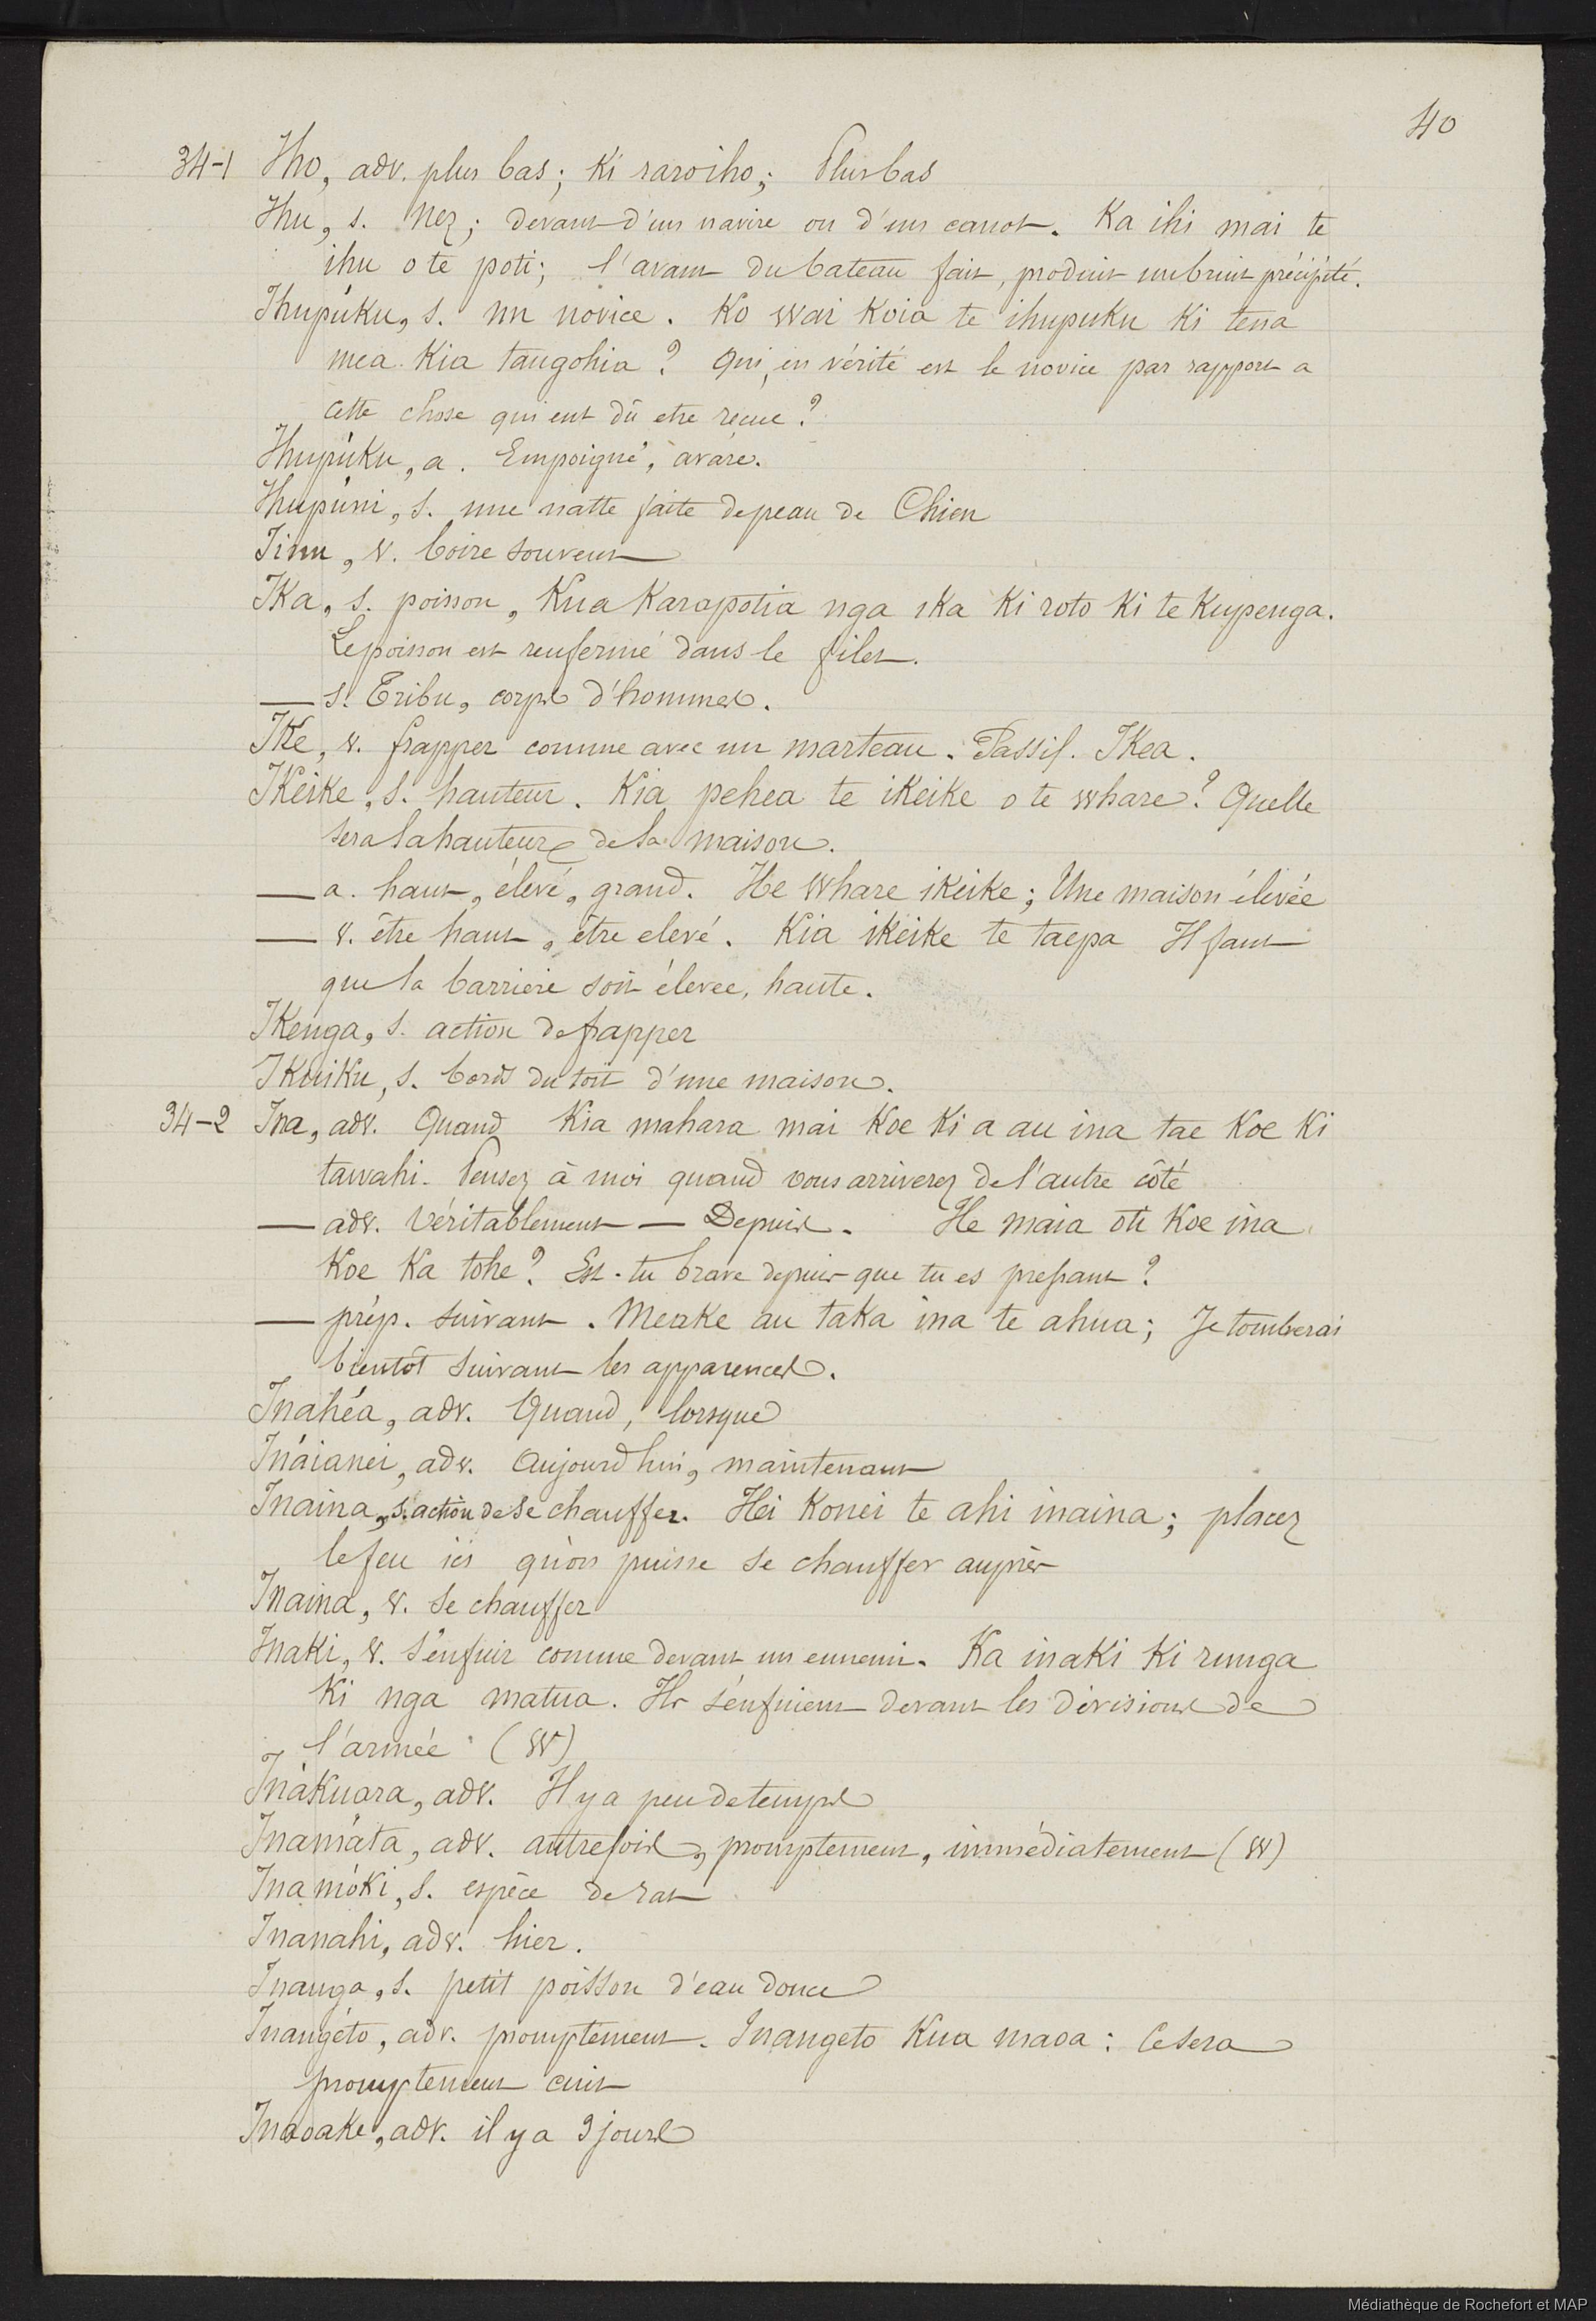 40
34-1 Iho, adv. plus bas; Ki raroiho; Plus bas
Ihu, s. Nez; devant d'un navire ou d'un canot. Ka ihi mai te
ihu o te poti; l'avant du bateau fait, produit un bruit précipité.
Ihupúku, s. un novice. Ko wai Koia te ihupuku Ki tena
mea Kia tangohia? Qui, en vérité est le novice par rapport a
cette chose qui eut dû etre recue?
Ihupúku, a. Empoigné, avare.
Ihupúni, s. une natte faite de peau de Chien
Iinu, v. boire souvent
IKa, s. poisson, Kua Karapotia nga ika Ki roto Ki te Kupenga.
Le poisson est renfermé dans le filet.
— s. Tribu, corps d'hommes.
IKe, v. frapper comme avec un marteau. Passif. IKea.
IKeike, s. hauteur. Kia pehea te iKeike o te whare? Quelle
sera la hauteur de la maison.
— a. haut, élevé, grand. He Whare iKeike; Une maison élevée
— v. être haut, être elevé. Kia iKeike te taepa Il faut
que la barriere soit élevee, haute.
IKenga, s. action de frapper
IKuiKu, s. bords du toit d'une maison.
34-2 Ina, adv. Quand Kia mahara mai Koe Ki a au ina tae Koe Ki
tawahi. Pensez à moi quand vous arriverez de l'autre côté
— adv. Véritablement — Depuis. He maia oti Koe ina
Koe Ka tohe? Est-tu brave depuis que tu es pressant?
— prép. suivant. Meake au taka ina te ahua; Je tomberai
bientôt suivant les apparences.
Inahéa, adv. Quand, lorsque
Ináianei, adv. Aujourd'hui, maintenant
Inaina, s. action de se chauffer. Hei Konei te ahi inaina; placez
le feu ici qu'on puisse se chauffer auprès
Inaina, v. se chauffer
InaKi, v. s'enfuir comme devant un ennemi. Ka inaKi Ki runga
Ki nga matua. Ils s'enfuient devant les divisions de
l'armée (W)
InáKuara, adv. Il y a peu de temps
Inamáta, adv. autrefois, promptement, immédiatement (W)
InamóKi, s. espèce de rat
Inanahi, adv. hier.
Inanga, s. petit poisson d'eau douce
Inangéto, adv. promptement. Inangeto Kua maoa: Ce sera
promptement cuit
Inaoake, adv. il y a 3 jours
Médiathèque de Rochefort et MAP